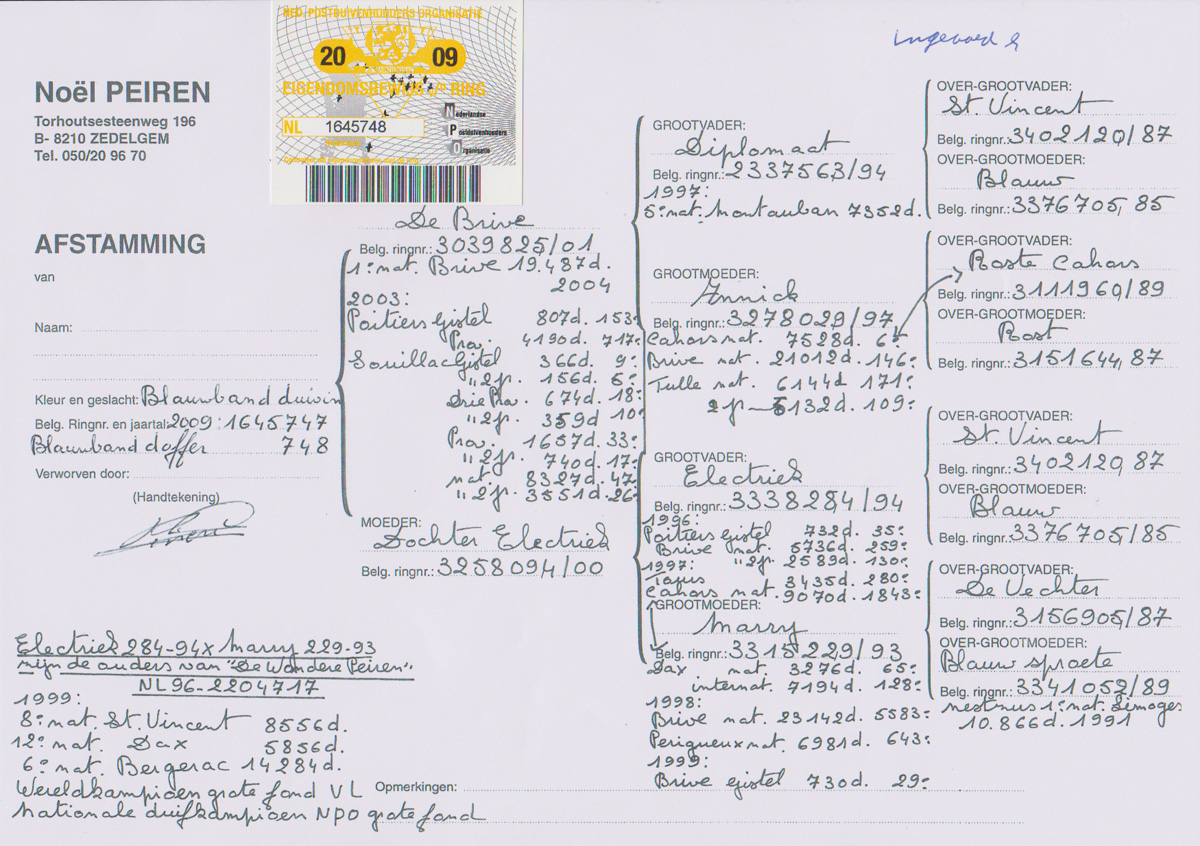 Ingevoerd
NED. POSTDUIVENHOUDERS ORGANISATIE
20 09
EIGENDOMSBEWIJS v/d RING
NL 1645748
Nederlandse
Postduivenhouders
Organisatie
Noël PEIREN
Torhoutsesteenweg 196
B- 8210 ZEDELGEM
Tel. 050/20 96 70
AFSTAMMING
van
Naam:
Kleur en geslacht: Blauwband duivin
Belg. Ringnr. en jaartal: 2009: 1645747
Blauwband doffer 748
Verworven door:
(Handtekening)
De Brive
Belg. ringnr.: 3039825/01
1e nat. Brive 19.487d.
2004
2003:
Poitiers Gistel 807d. 153e
Prov. 4190d. 717e
Souillac Gistel 366d. 9e
" 2j. 156d. 5e
Drie Prov. 674d. 18e
" 2j. 359d 10e
Prov. 1657d. 33e
" 2j. 740d. 17e
nat. 8327d. 47e
" 2j. 3551d. 26e
MOEDER:
Dochter Electriek
Belg. ringnr.: 3258094/00
GROOTVADER:
Diplomaat
Belg. ringnr.: 2337563/94
1997:
5e nat. Montauban 7352d.
GROOTMOEDER:
Annick
Belg. ringnr.: 3278029/97
Cahors nat. 7528d. 6e
Brive nat. 21012d. 146e
Tulle nat. 6144d 171e
2j - 5132d. 109e
GROOTVADER:
Electriek
Belg. ringnr.: 3338284/94
1996:
Poitiers Gistel 732d. 35e
Brive nat. 5736d. 259e
" 2j. 2589d. 130e
1997:
3435d. 280e
Cahors nat. 9070d. 1843e
GROOTMOEDER:
Marry
Belg. ringnr.: 3315229/93
Dax nat. 3276d. 65e
internat. 7194d. 128e
1998:
Brive nat. 23142d. 5583e
Perigueux nat. 6981d. 643e
1999:
Brive Gistel 730d. 29e
OVER-GROOTVADER:
St. Vincent
Belg. ringnr.: 3402120/87
OVER-GROOTMOEDER:
Blauw
Belg. ringnr.: 3376705/85
OVER-GROOTVADER:
Roste Cahors
Belg. ringnr.: 3111960/89
OVER-GROOTMOEDER:
Rost
Belg. ringnr.: 3151644/87
OVER-GROOTVADER:
St. Vincent
Belg. ringnr.: 3402120/87
OVER-GROOTMOEDER:
Blauw
Belg. ringnr.: 3376705/85
OVER-GROOTVADER:
De Vechter
Belg. ringnr.: 3156905/87
OVER-GROOTMOEDER:
Blauw sproete
Belg. ringnr.: 3341052/89
nestzus 1e nat. Limoges
10.866d. 1991
Electriek 284-94 x Marry 229-93
zijn de ouders van "De Wondere Peiren"
NL 96-2204717
1999:
8e nat. St. Vincent 8556d.
12e nat. Dax 5856d.
6e nat. Bergerac 14284d.
Wereldkampioen grote fond VL
Nationale duifkampioen NPO grote fond
Opmerkingen: